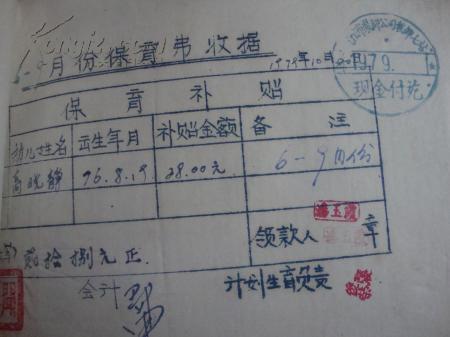 月份保育弗收据
1979年10月20日
1979.
现金付讫
保育补贴
幼儿姓名 出生年月 补贴金额 备注
高晓静 76.8.19 28.00元 6-9月份
领款人 章
贰拾捌元正.
会计
计划生育负责